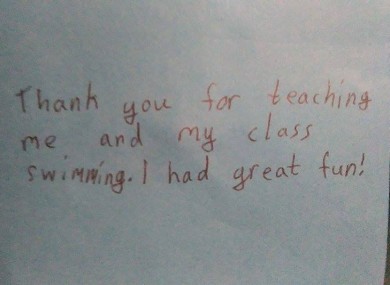 Thank you for teaching
me and my class
swimming. I had great fun!